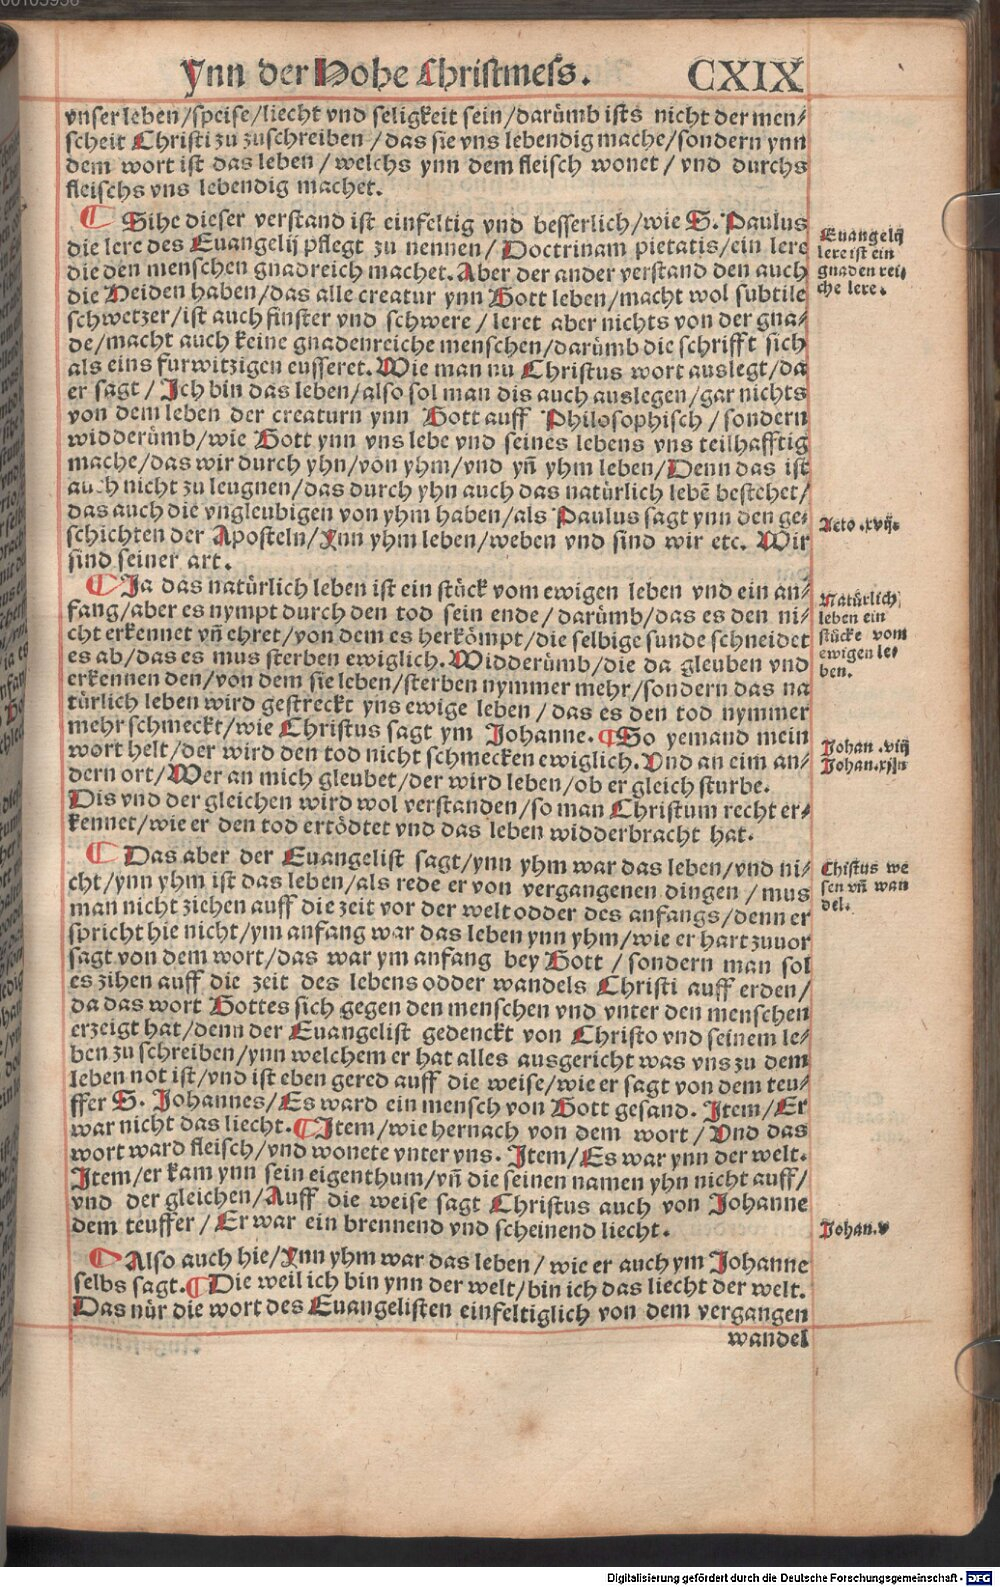 Ynn der Hohe Christmess. CXIX
vnser leben/speise/liecht vnd seligkeit sein/darümb ists nicht der men/
scheit Christi zu zuschreiben/das sie vns lebendig mache/sondern ynn
dem wort ist das leben/welchs ynn dem fleisch wonet/vnd durchs
fleischs vns lebendig machet.
¶ Sihe dieser verstand ist einfeltig vnd besserlich/wie S. Paulus
die lere des Euangelij pflegt zu nennen/Doctrinam pietatis/ein lere
die den menschen gnadreich machet. Aber der ander verstand den auch
die Heiden haben/das alle creatur ynn Gott leben/macht wol subtile
schwetzer/ist auch finster vnd schwere/leret aber nichts von der gna/
de/macht auch keine gnadenreiche menschen/darümb die schrifft sich
als eins furwitzigen eusseret. Wie man nu Christus wort auslegt/da
er sagt/Ich bin das leben/also sol man dis auch auslegen/gar nichts
von dem leben der creaturn ynn Gott auff Philosophisch/sondern
widderümb/wie Gott ynn vns lebe vnd seines lebens vns teilhafftig
mache/das wir durch yhn/von yhm/vnd yñ yhm leben/Denn das ist
auch nicht zu leugnen/das durch yhn auch das natürlich lebē bestehet/
das auch die vngleubigen von yhm haben/als Paulus sagt ynn den ge/
schichten der Aposteln/Ynn yhm leben/weben vnd sind wir etc. Wir
sind seiner art.
¶ Ja das natürlich leben ist ein stück vom ewigen leben vnd ein an/
fang/aber es nympt durch den tod sein ende/darümb/das es den ni/
cht erkennet vñ ehret/von dem es herkömpt/die selbige sunde schneidet
es ab/das es mus sterben ewiglich. Widderümb/die da gleuben vnd
erkennen den/von dem sie leben/sterben nymmer mehr/sondern das na
türlich leben wird gestreckt yns ewige leben/das es den tod nymmer
mehr schmeckt/wie Christus sagt ym Johanne. ¶ So yemand mein
wort helt/der wird den tod nicht schmecken ewiglich. Vnd an eim an/
dern ort/Wer an mich gleubet/der wird leben/ob er gleich sturbe.
Dis vnd der gleichen wird wol verstanden/so man Christum recht er/
kennet/wie er den tod ertödtet vnd das leben widderbracht hat.
¶ Das aber der Euangelist sagt/ynn yhm war das leben/vnd ni/
cht/ynn yhm ist das leben/als rede er von vergangenen dingen/mus
man nicht ziehen auff die zeit vor der welt odder des anfangs/denn er
spricht hie nicht/ym anfang war das leben ynn yhm/wie er hart zuuor
sagt von dem wort/das war ym anfang bey Gott/sondern man sol
es zihen auff die zeit des lebens odder wandels Christi auff erden/
da das wort Gottes sich gegen den menschen vnd vnter den menschen
erzeigt hat/denn der Euangelist gedenckt von Christo vnd seinem le/
ben zu schreiben/ynn welchem er hat alles ausgericht was vns zu dem
leben not ist/vnd ist eben gered auff die weise/wie er sagt von dem teu/
ffer S. Johannes/Es ward ein mensch von Gott gesand. Item/Er
war nicht das liecht. ¶ Item/wie hernach von dem wort/Vnd das
wort ward fleisch/vnd wonete vnter vns. Item/Es war ynn der welt.
Item/er kam ynn sein eigenthum/vñ die seinen namen yhn nicht auff/
vnd der gleichen/Auff die weise sagt Christus auch von Johanne
dem teuffer/Er war ein brennend vnd scheinend liecht.
¶ Also auch hie/Ynn yhm war das leben/wie er auch ym Johanne
selbs sagt. ¶ Die weil ich bin ynn der welt/bin ich das liecht der welt.
Das nür die wort des Euangelisten einfeltiglich von dem vergangen
wandel
Euangelij
lere ist ein
gnaden rei/
che lere.
Acto .xvij.
Natürlich
leben ein
stücke vom
ewigen le/
ben.
Johan .viij
Johan.xj.
Chistus we
sen vñ wan
del.
Johan.v
Digitalisierung gefördert durch die Deutsche Forschungsgemeinschaft - DFG